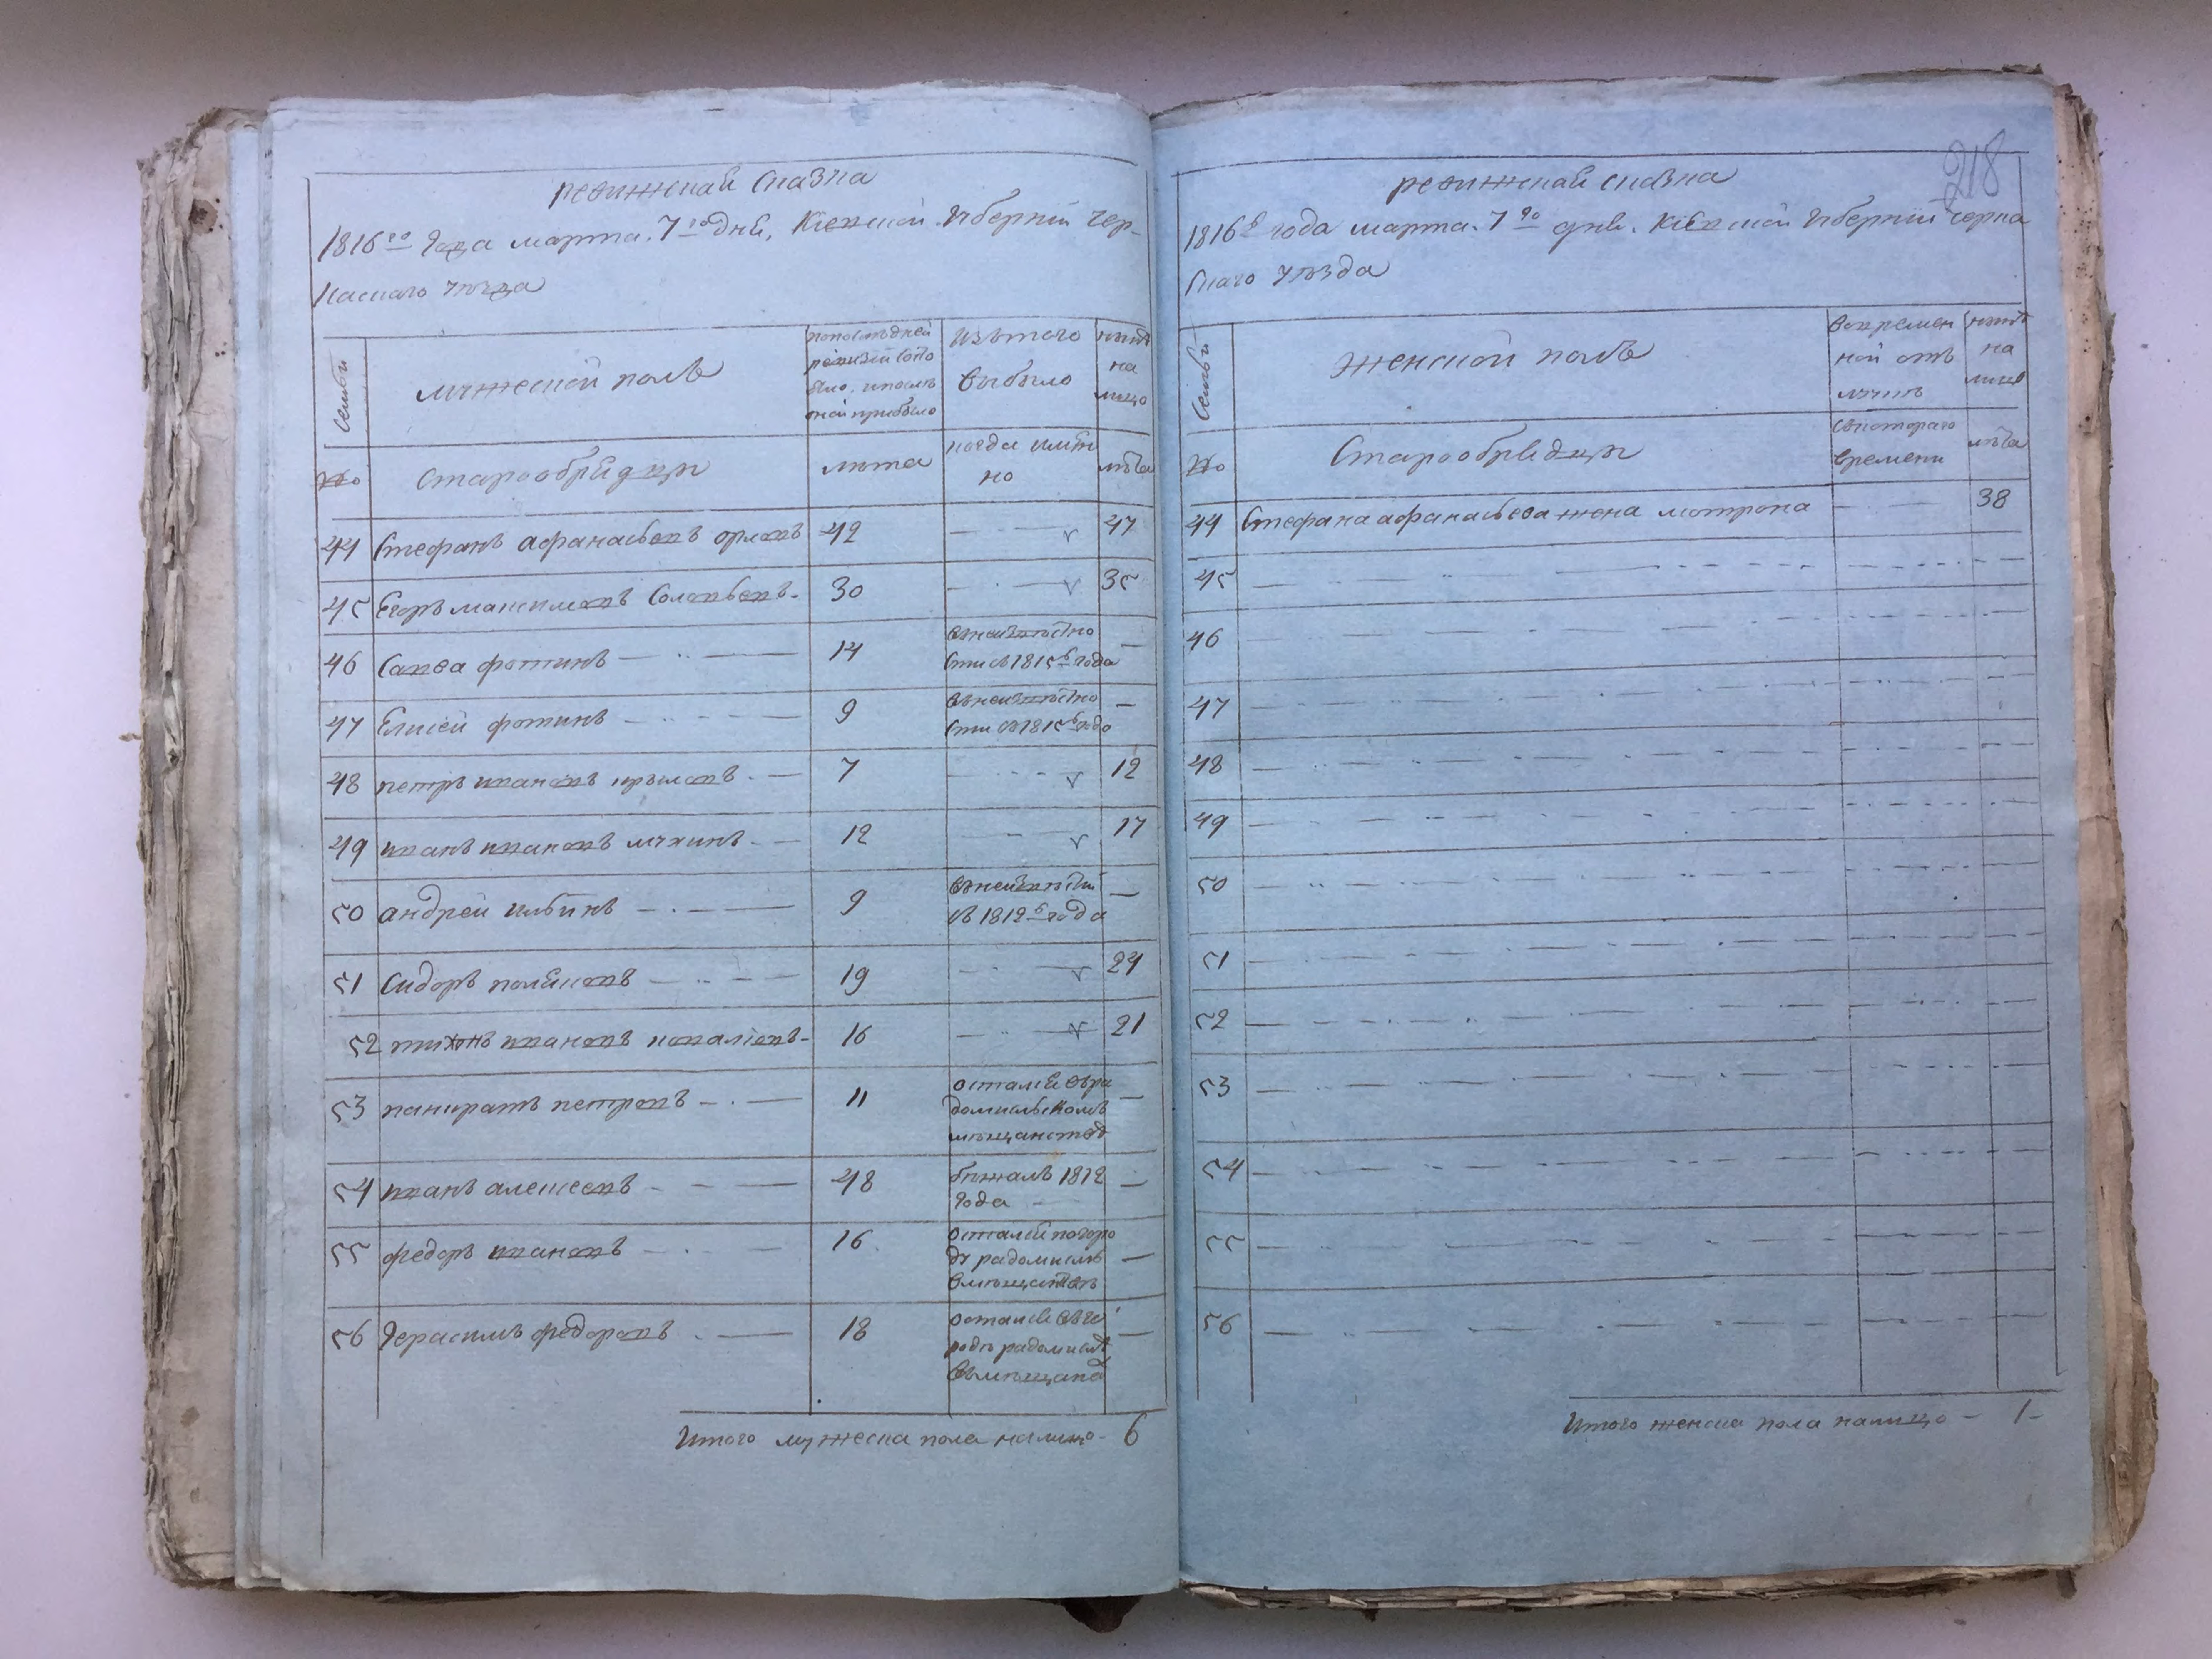 ревижская сказка
1816го года марта 7го дня, Кіевской губерніи чер-
каскаго уезда
семьи
мужеской полъ
попоследней
ревизіи состо
яло, и после
оной прибыло
изътого
выбыло
ныне
на
лицо
№
старообрядцы
лета
когда имян
но
лета
44 Стефанъ афанасьевъ орловъ 42 — 47
45 Егоръ максимовъ Соловьевъ - 30 — 35
46 Савва фотинъ — 14 внеизвестно —
сти съ 1815г года
47 Елисей фотинъ — 9 внеизвестно —
сти съ 1815г года
48 петръ ивановъ крыловъ - 7 — 12
49 иванъ ивановъ мухинъ - 12 — 17
50 андрей ильинъ — 9 внеизвести —
съ 1812г года
51 Сидоръ — 19 — 24
52 тихонъ ивановъ ковалiовъ - 16 — 21
53 панкратъ петровъ — 11 остался въра —
домысльскомъ
мещанстве
54 иванъ алексеевъ — 48 бежалъ 1812 —
года
55 федоръ ивановъ — 16 остался погоро
ду радомыслю —
вмещанствъ
56 Герасимъ федоровъ — 18 остался въго
роде радомысле —
вмещана
Итого мужеска пола налицо - 6
218
ревижская сказка
1816г года марта 7го дня. Кіевской губерніи черка
скаго уезда
семьи
женской полъ
вовремен
ной отъ
лучке
ныне
на
лицо
№
старообрядцы
скотораго
времени
лета
44 Стефана афанасьева жена мотрона — 38
45 —
46 —
47 —
48 —
49 —
50 —
51 —
52 —
53 —
54 —
55 —
56 —
Итого женска пола налицо - 1 -